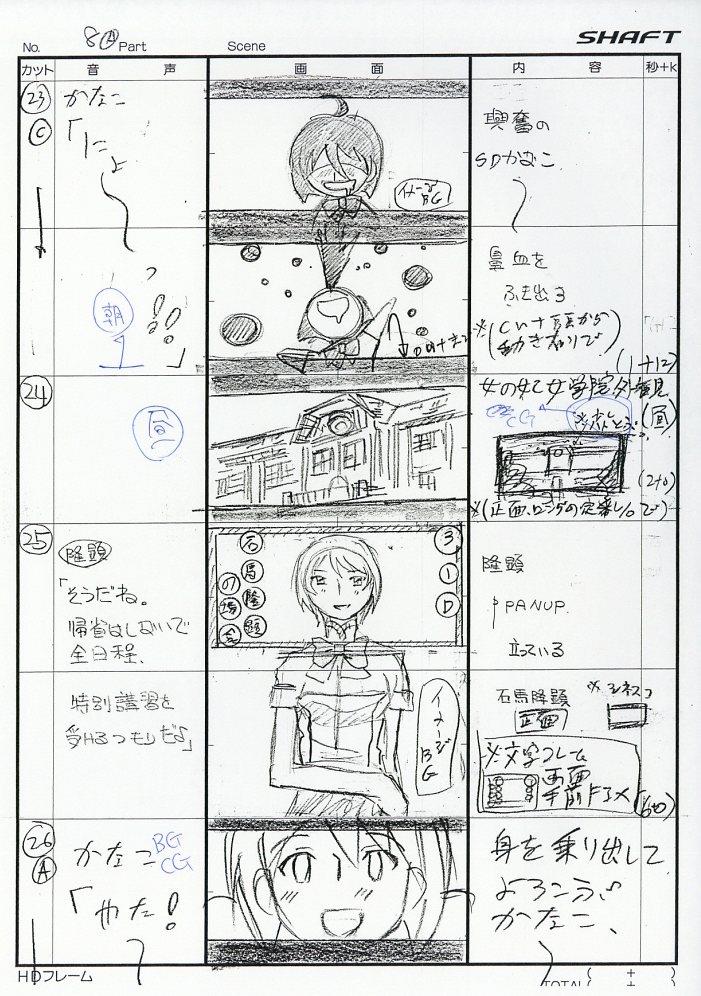 No. 8 Part Scene SHAFT
カット 音声 画面 内容 秒+k
23
C
かなこ
「によ
イメージBG
興奮の
SDかなこ
っ!!」
朝
鼻血を
ふき出る
24
昼
(1+12)
女の女乙女学院外観
(昼)
CG
(2+0)
※(正面、ロングの定番L/Oで)
25
隆顕
「そうだね。
帰省はしないで
全日程、
特別講習を
受けるつもりだよ」
石馬隆顕の場合
3 1 D
イメージBG
隆顕
PAN UP.
立っている
石馬隆顕
正面
※シネスコ
※文字フレーム
画面
手前FIX
(6+0)
26
A
かなこ
BG
CG
「やた!
身を乗り出して
よろこぶ
かなこ、
HDフレーム
TOTAL ( + )